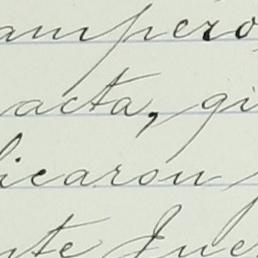 ampero
acta, gi
licaron
nte Jue